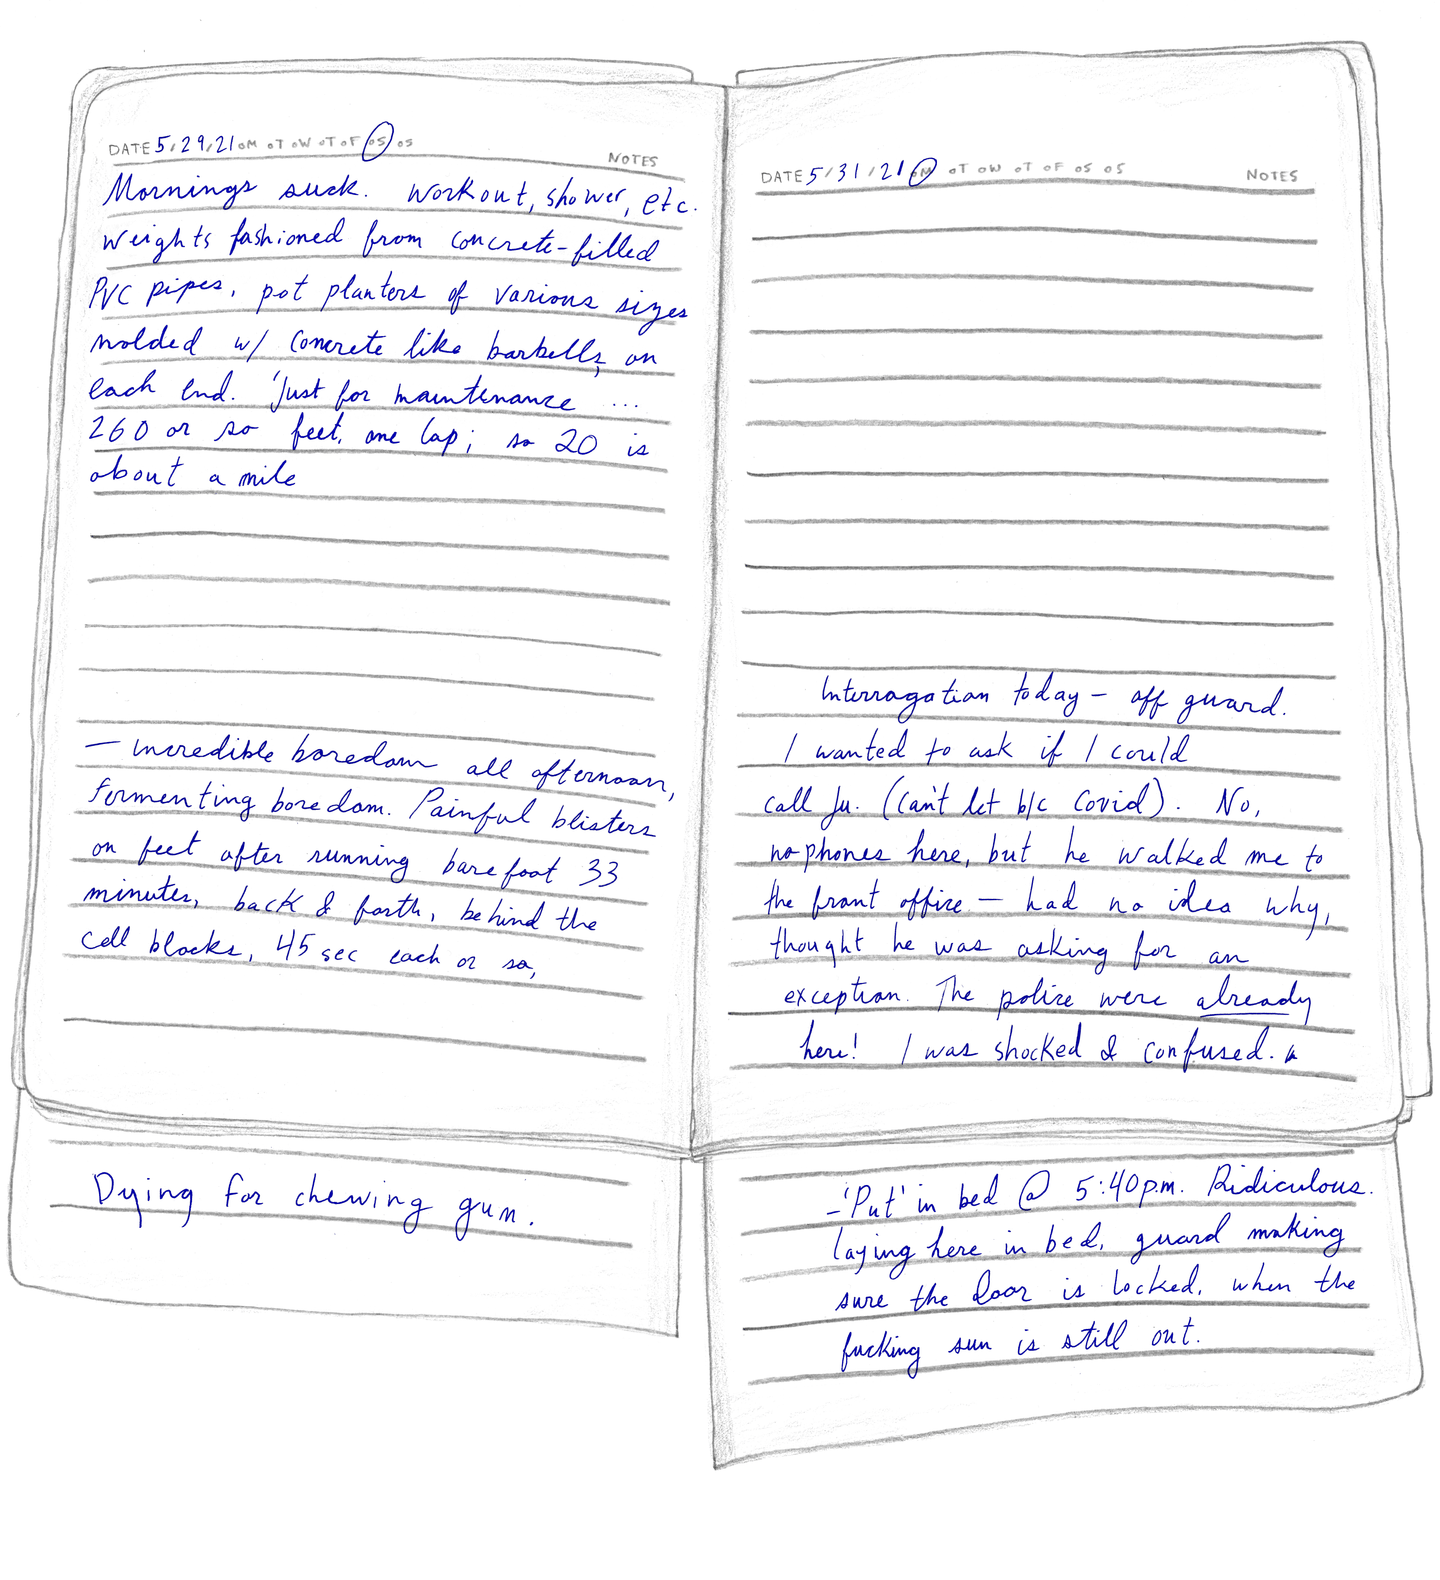 DATE 5/29/21 oM oT oW oT oF oS oS
NOTES
Mornings suck. Workout, shower, etc.
Weights fashioned from concrete-filled
PVC pipes, pot planters of various sizes
molded w/ concrete like barbells, on
each end. 'Just for maintenance ...
260 or so feet, one lap; so 20 is
about a mile
— incredible boredom all afternoon,
fermenting boredom. Painful blisters
on feet after running barefoot 33
minutes, back & forth, behind the
cell blocks, 45 sec each or so,
Dying for chewing gum.
DATE 5/31/21 oM oT oW oT oF oS oS
NOTES
Interrogation today – off guard.
I wanted to ask if I could
call Ju. (can't let b/c Covid). No,
no phones here, but he walked me to
the front office — had no idea why,
thought he was asking for an
exception. The police were already
here! I was shocked & confused.
– 'Put' in bed @ 5:40 p.m. Ridiculous.
laying here in bed, guard making
sure the door is locked, when the
fucking sun is still out.